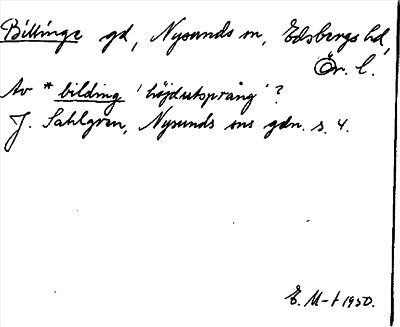 Billinge gd, Nysunds sn, Edsbergs hd,
Ör. l.
Av *bilding 'höjdutsprång'?
J. Sahlgren, Nysunds sns gdn. s. 4.
E. M-t 1950.